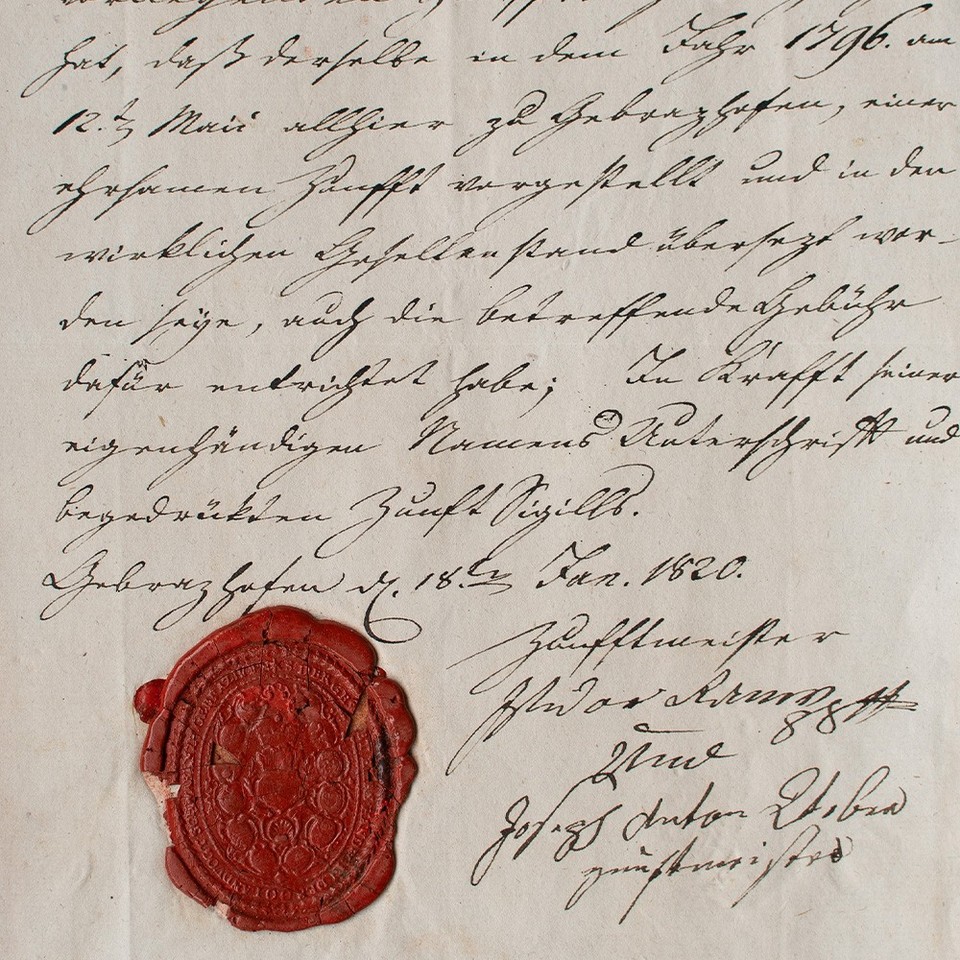 hat, daß derselbe in dem Jahr 1796. am
12.t Maii allhier zu Gebrazhofen, einer
ehrsamen Zunfft vorgestellt und in den
wirklichen Gesellenstand übersezt wor-
den seye, auch die betreffende Gebühr
dafür entrichtet habe; In Krafft seiner
eigenhändigen Namens Unterschrifft und
begedrükten Zunft Sigills.
Gebrazhofen d. 18.ten Jan. 1820.
Zunfftmeister
Isidor
Und
Joseph Anton Weber
zunftmeister